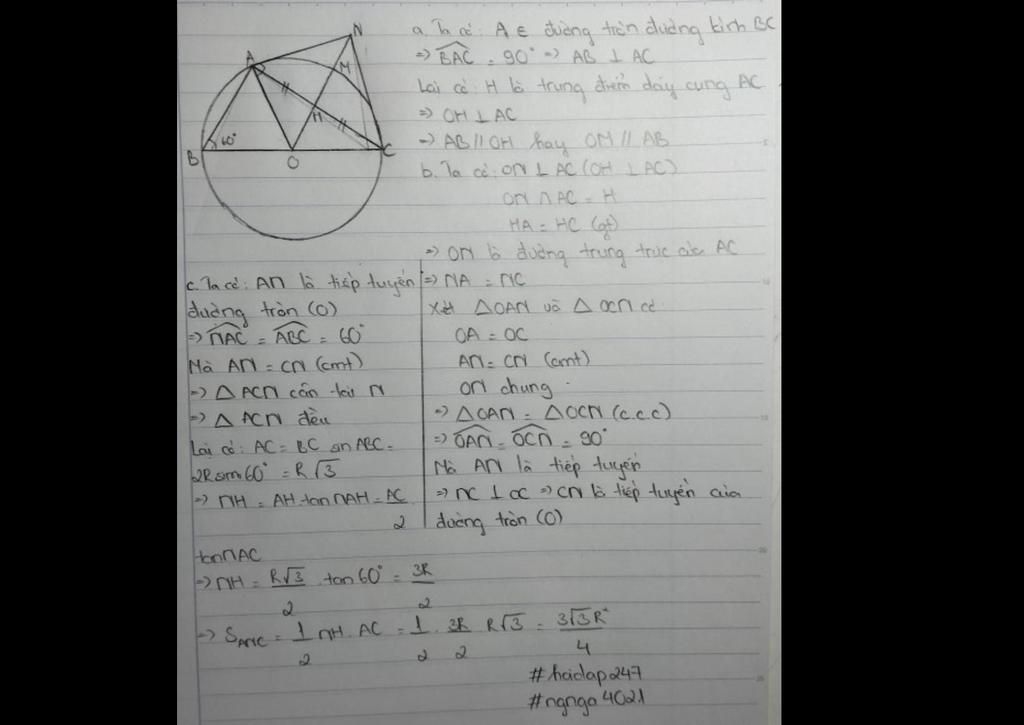 N
A
M
H
60°
B
O
C
a. Ta có: A ∈ đường tròn đường kính BC
=> BAC = 90° => AB ⊥ AC
Lại có: H là trung điểm dây cung AC
=> OH ⊥ AC
=> AB // OH hay OM // AB
b. Ta có: ON ⊥ AC (OH ⊥ AC)
ON ∩ AC = H
HA = HC (gt)
=> ON là đường trung trực của AC
=> NA = NC
Xét △OAN và △OCN có
OA = OC
AN = CN (cmt)
ON chung
=> △OAN = △OCN (c.c.c)
=> OAN = OCN = 90°
Mà AN là tiếp tuyến
=> NC ⊥ OC => CN là tiếp tuyến của
đường tròn (O)
c. Ta có: AN là tiếp tuyến
đường tròn (O)
=> NAC = ABC = 60°
Mà AN = CN (cmt)
=> △ACN cân tại N
=> △ACN đều
Lại có: AC = BC sin ABC =
2R sin 60° = R√3
=> NH = AH . tan NAH = AC/2
tan NAC
=> NH = R√3/2 . tan 60° = 3R/2
=> S_ANC = 1/2 NH . AC = 1/2 . 3R/2 . R√3 = 3√3R²/4
#hoidap247
#ngnga4021